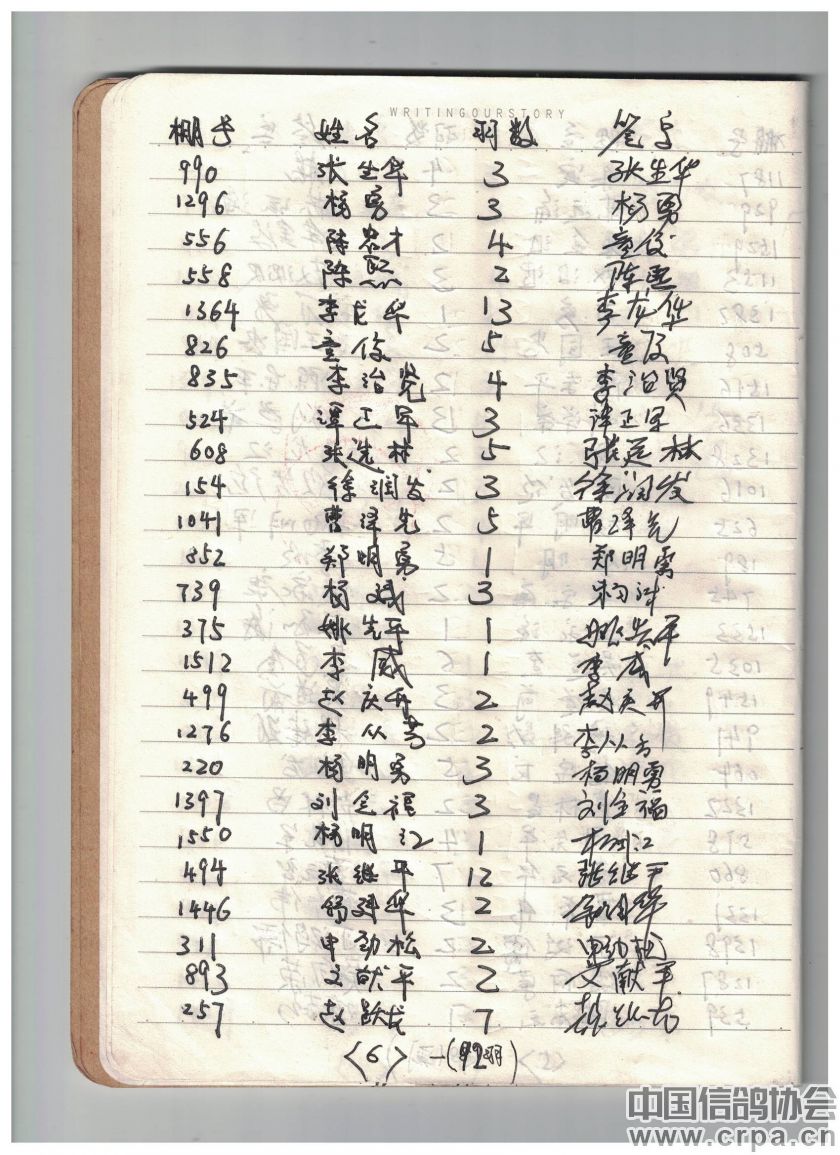 WRITINGOURSTORY
棚号 姓名 羽数 签字
990 张生华 3 张生华
1296 杨勇 3 杨勇
556 陈忠才 4 童俊
558 陈熙 2 陈熙
1364 李龙华 13 李龙华
826 童俊 5 童俊
835 李治贤 4 李治贤
524 谭正军 3 谭正军
608 张选林 5 张选林
154 徐润发 3 徐润发
1041 曹泽先 5 曹泽先
852 郑明勇 1 郑明勇
739 杨斌 3 杨斌
375 姚先平 1 姚先平
1512 李威 1 李威
499 赵庆升 2 赵庆升
1276 李从芳 2 李从芳
220 杨明勇 3 杨明勇
1397 刘全福 3 刘全福
1550 杨明江 1 杨明江
494 张继平 12 张继平
1446 杨建华 2
311 申劲松 2 申劲松
893 文献平 2 文献平
257 赵跃龙 7 赵跃龙
〈6〉 —(92羽)
中国信鸽协会
www.crpa.cn